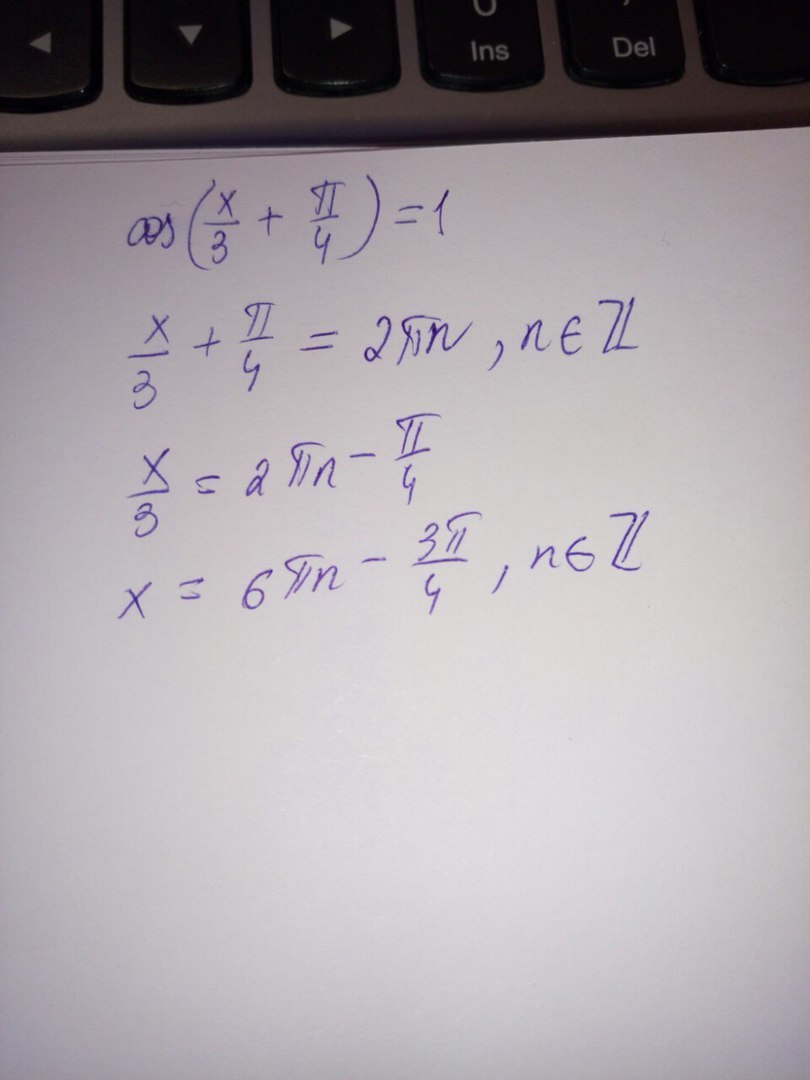 ◀ ▼ ▶ Ins Del
cos(x/3 + π/4) = 1
x/3 + π/4 = 2πn, n∈ℤ
x/3 = 2πn - π/4
x = 6πn - 3π/4, n∈ℤ